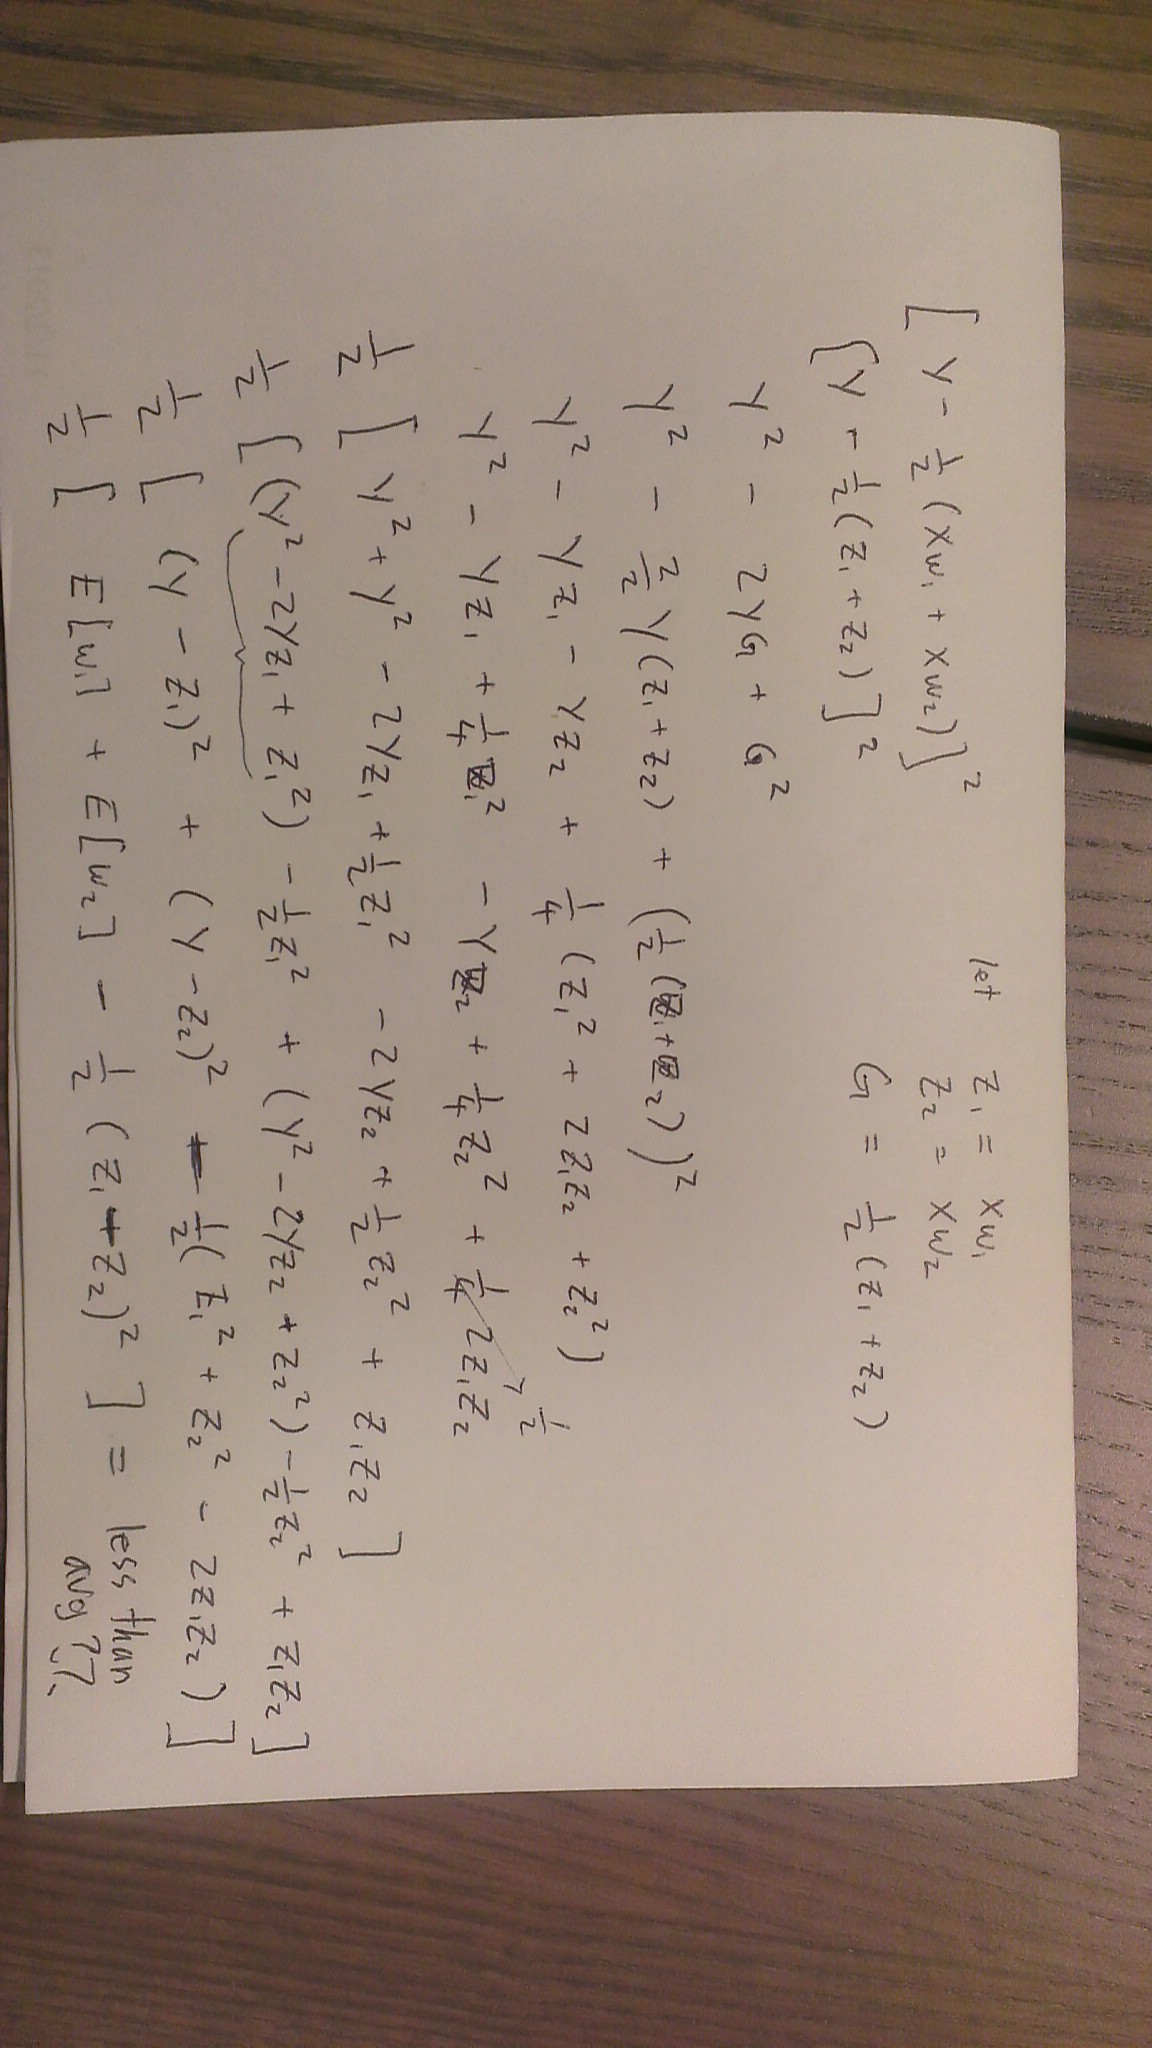 [ Y - 1/2 (xw₁ + xw₂) ]² let z₁ = xw₁
z₂ = xw₂
[ Y - 1/2 (z₁ + z₂) ]² G = 1/2 (z₁ + z₂)
Y² - 2YG + G²
Y² - 2/2 Y(z₁ + z₂) + (1/2 (z₁ + z₂))²
Y² - Yz₁ - Yz₂ + 1/4 (z₁² + 2z₁z₂ + z₂²)
Y² - Yz₁ + 1/4 z₁² - Yz₂ + 1/4 z₂² + 1/4 2z₁z₂ 1/2
1/2 [ Y² + Y² - 2Yz₁ + 1/2 z₁² - 2Yz₂ + 1/2 z₂² + z₁z₂ ]
1/2 [ (Y² - 2Yz₁ + z₁²) - 1/2 z₁² + (Y² - 2Yz₂ + z₂²) - 1/2 z₂² + z₁z₂ ]
1/2 [ (Y - z₁)² + (Y - z₂)² - 1/2 (z₁² + z₂² - 2z₁z₂) ]
1/2 [ E[w₁] + E[w₂] - 1/2 (z₁ - z₂)² ] = less than
avg??